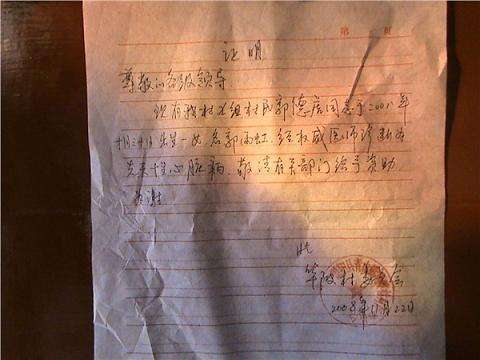 第 页
证明
尊敬的各级领导
现有我村 组村民郭德 同志于2001年
十月三十日 生一女 名郭雨虹.经权威医师诊断为
先天性心脏病,敬请有关部门给予资助
为谢
此
笨陂村委会
2008年11月22日